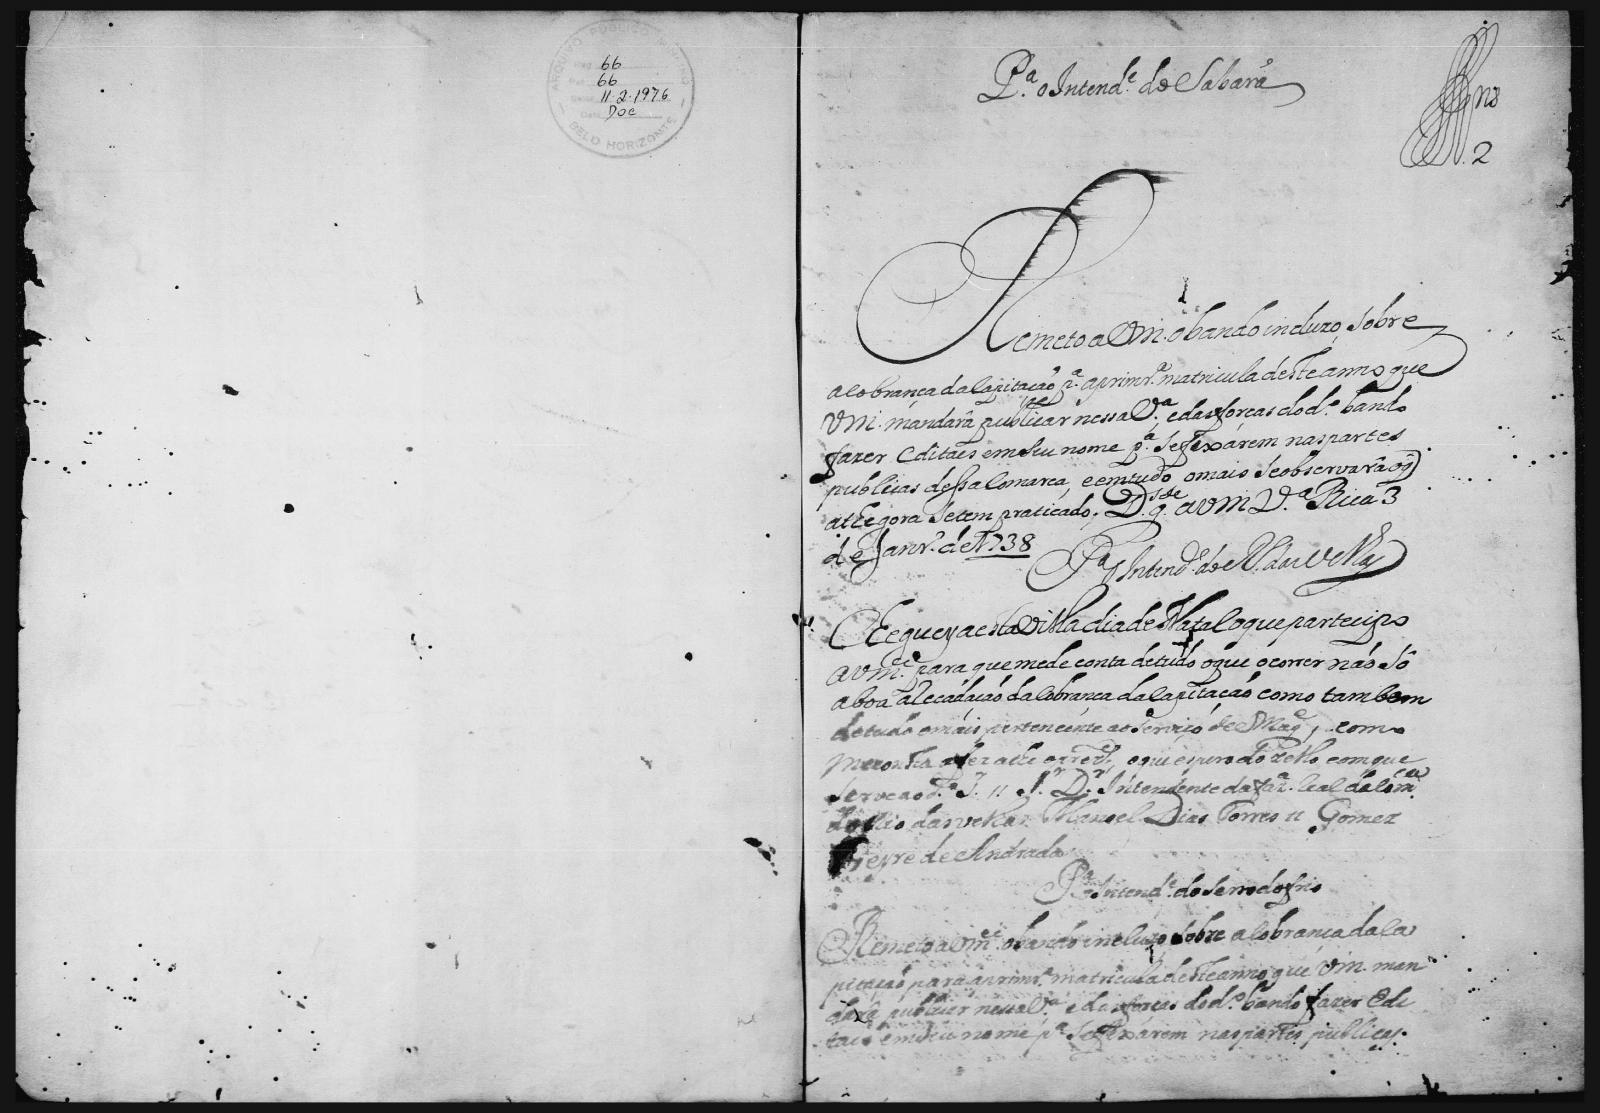 ARQUIVO PÚBLICO MINEIRO
66
66
11-2-1976
Doc
BELO HORIZONTE
P.ª o Intend.e de Sabarâ
2
Remeto a Vm. o bando incluzo, sobre
a cobrança da Capitação p.ª a prim.rª matricula deste anno que
Vm. mandarâ publicar nessa V.ª e das forças do d.º bando
fazer Editaes em seu nome p.ª se fixárem nas partes
publicas dessa Comarca, e em tudo o mais se observarâ o q̃
athegora se tem praticado; D.s g.de a Vm V.ª Rica 3
de Janr.º de 1738
P.ª o Intend.e do R. das Velhas
Cheguey a esta Villa dia de Natal o que participo
a Vm.ce para que me de conta de tudo o que ocorrer não sô
a boa arecadação da Cobrança da Capitação como tambem
de tudo o mais pertencente ao serviço de S Mag.e, como
me conta o fez athe o prez.te, o que espero do zello com que
serve ao d.º S.r // S.r D.r Intendente da faz.ª Real da Com.ca
do Rio das Velhas Manoel Dias Torres // Gomez
Freyre de Andrada
P.ª o Intend.e do Serro do frio
Remeto a Vm.ce o bando incluzo sobre a Cobrança da Ca
pitação para a prim.rª matricula deste anno que Vm. man
darâ publicar nessa V.ª e das forças do d.º bando fazer Edi
taes em seu nome p.ª se fixárem nas partes publicas